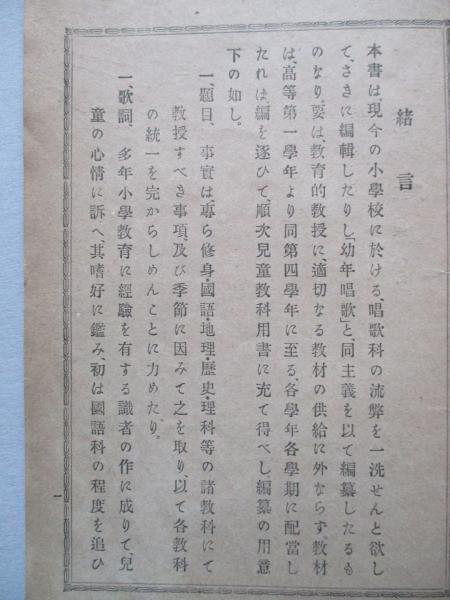 緒言
本書は、現今の小學校に於ける唱歌科の流弊を一洗せんと欲し
て、さきに編輯したりし「幼年唱歌」と、同主義を以て編纂したるも
のなり。要は、教育的教授に、適切なる教材の供給に外ならず。教材
は、高等第一學年より同第四學年に至る、各學年各學期に配當し
たれは編を逐ひて、順次兒童教科用書に充て得べし。編纂の用意
下の如し。
一、題目、事實は、專ら修身・國語・地理・歷史・理科等の諸教科にて
教授すべき事項、及び季節に因みて之を取り、以て各教科
の統一を完からしめんことに力めたり。
一、歌詞、多年小學教育に經驗を有する識者の作に成りて、兒
童の心情に訴へ、其嗜好に鑑み、初は國語科の程度を追ひ
一